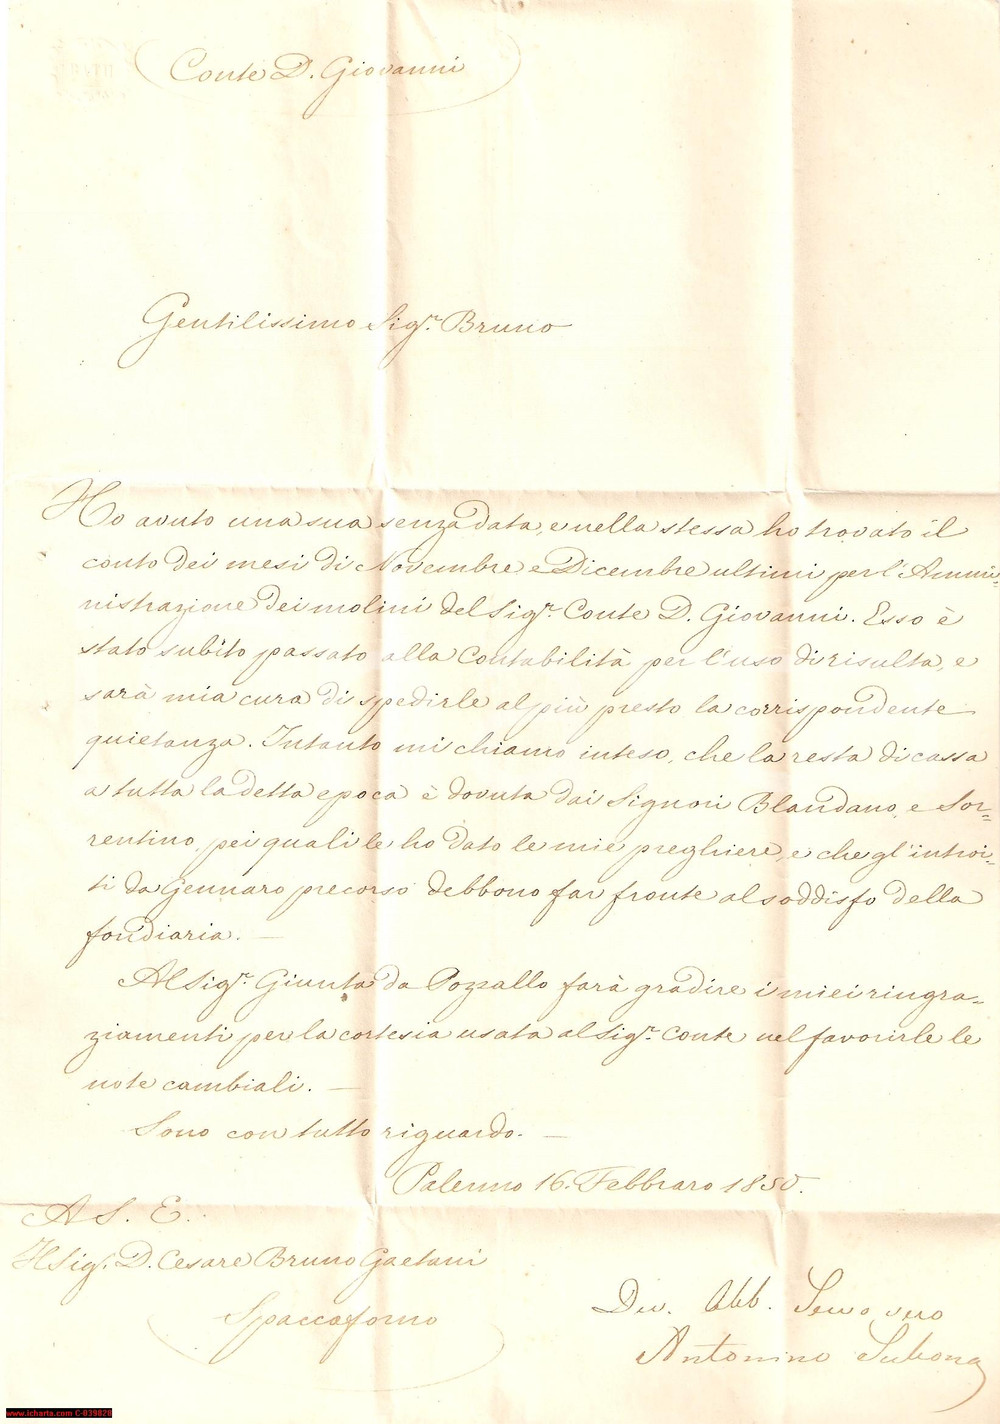 Conte D. Giovanni
Gentilissimo Sigr. Bruno
Ho avuto una sua senza data, e nella stessa ho trovato il
conto dei mesi di Novembre e Dicembre ultimi per l'Ammi-
nistrazione dei molini del Sigr. Conte D. Giovanni. Esso è
stato subito passato alla Contabilità per l'uso di risulta, e
sarà mia cura di spedirle al più presto la corrispondente
quietanza. Intanto mi chiamo inteso, che la resta di cassa
a tutta la detta epoca è dovuta dai Signori Blandano, e Sor-
rentino, pei quali le ho dato le mie preghiere, e che gl'introi-
ti da Gennaro precorso debbono far fronte al soddisfo della
fondiaria. —
Al Sigr. Giunta da Pozzallo farà gradire i miei ringra-
ziamenti per la cortesia usata al Sigr. Conte nel favorirle le
note cambiali. —
Sono con tutto riguardo. —
Palermo 16. Febbraro 1850.
A S. E.
Il Sigr. D. Cesare Bruno Gaetani
Spaccaforno
Div. Obb. Servo vero
Antonino
www.icharta.com C-039828